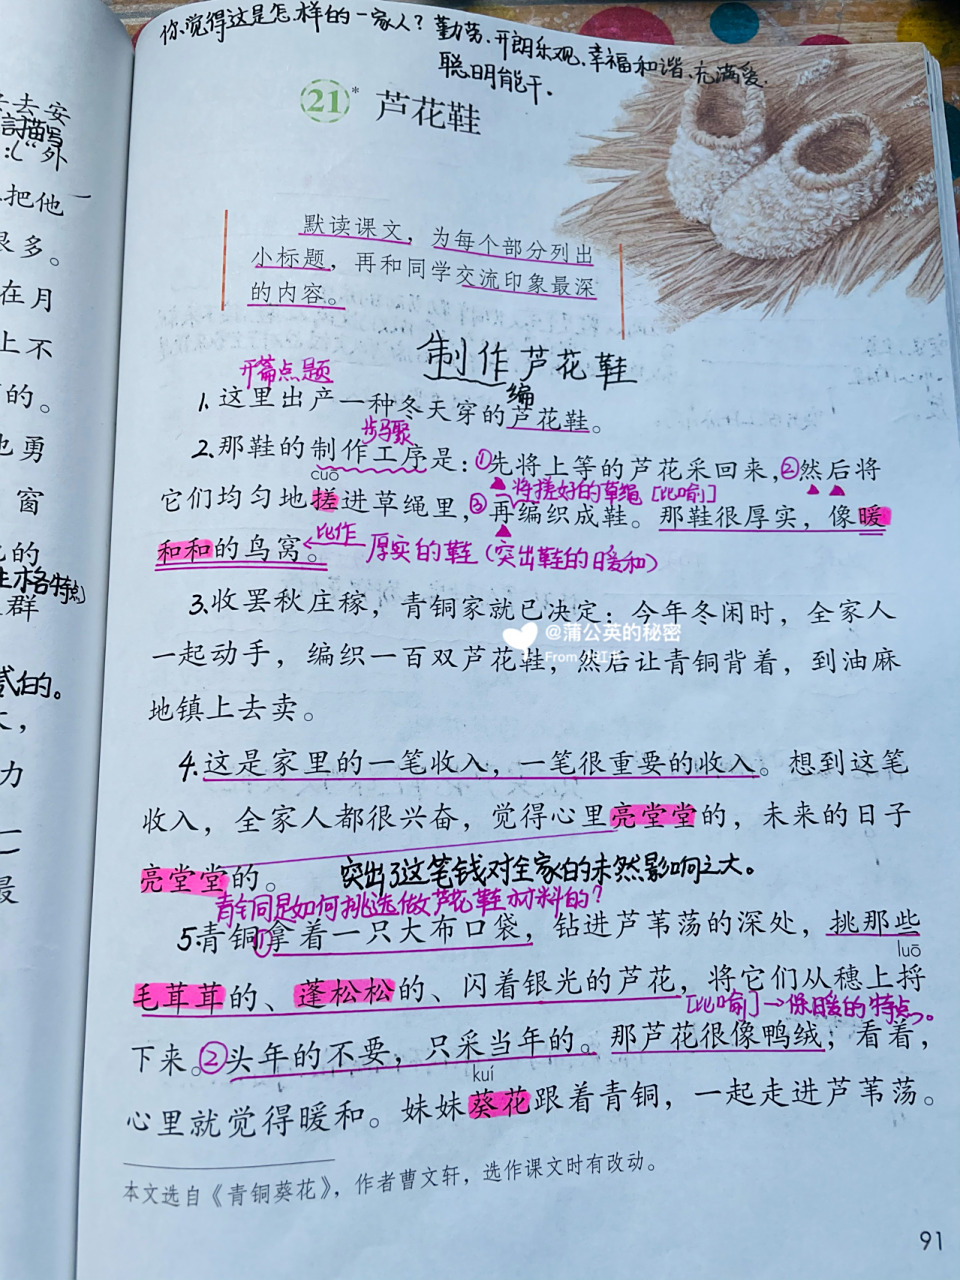 你觉得这是怎样的一家人？勤劳、开朗乐观、幸福和谐、充满爱、
聪明能干。
21* 芦花鞋
默读课文，为每个部分列出
小标题，再和同学交流印象最深
的内容。
制作芦花鞋
开篇点题
编
1.这里出产一种冬天穿的芦花鞋。
步骤
2.那鞋的制作工序是：①先将上等的芦花采回来，②然后将
cuō
将搓好的草绳[比喻]
它们均匀地搓进草绳里，③再编织成鞋。那鞋很厚实，像暖
和和的鸟窝。比作 厚实的鞋（突出鞋的暖和）
3.收罢秋庄稼，青铜家就已决定：今年冬闲时，全家人
@蒲公英的秘密
一起动手，编织一百双芦花鞋，然后让青铜背着，到油麻
地镇上去卖。
4.这是家里的一笔收入，一笔很重要的收入。想到这笔
收入，全家人都很兴奋，觉得心里亮堂堂的，未来的日子
亮堂堂的。 突出了这笔钱对全家的未然影响之大。
青铜是如何挑选做芦花鞋材料的？
5.青铜①拿着一只大布口袋，钻进芦苇荡的深处，挑那些
luō
毛茸茸的、蓬松松的、闪着银光的芦花，将它们从穗上捋
[比喻]→保暖的特点。
下来。②头年的不要，只采当年的。那芦花很像鸭绒，看着，
kuí
心里就觉得暖和。妹妹葵花跟着青铜，一起走进芦苇荡。
本文选自《青铜葵花》，作者曹文轩，选作课文时有改动。
91
去安
描写
外
把他
很多。
在月
上不
的。
也勇
窗
的
性格特点
群
的。
力
最